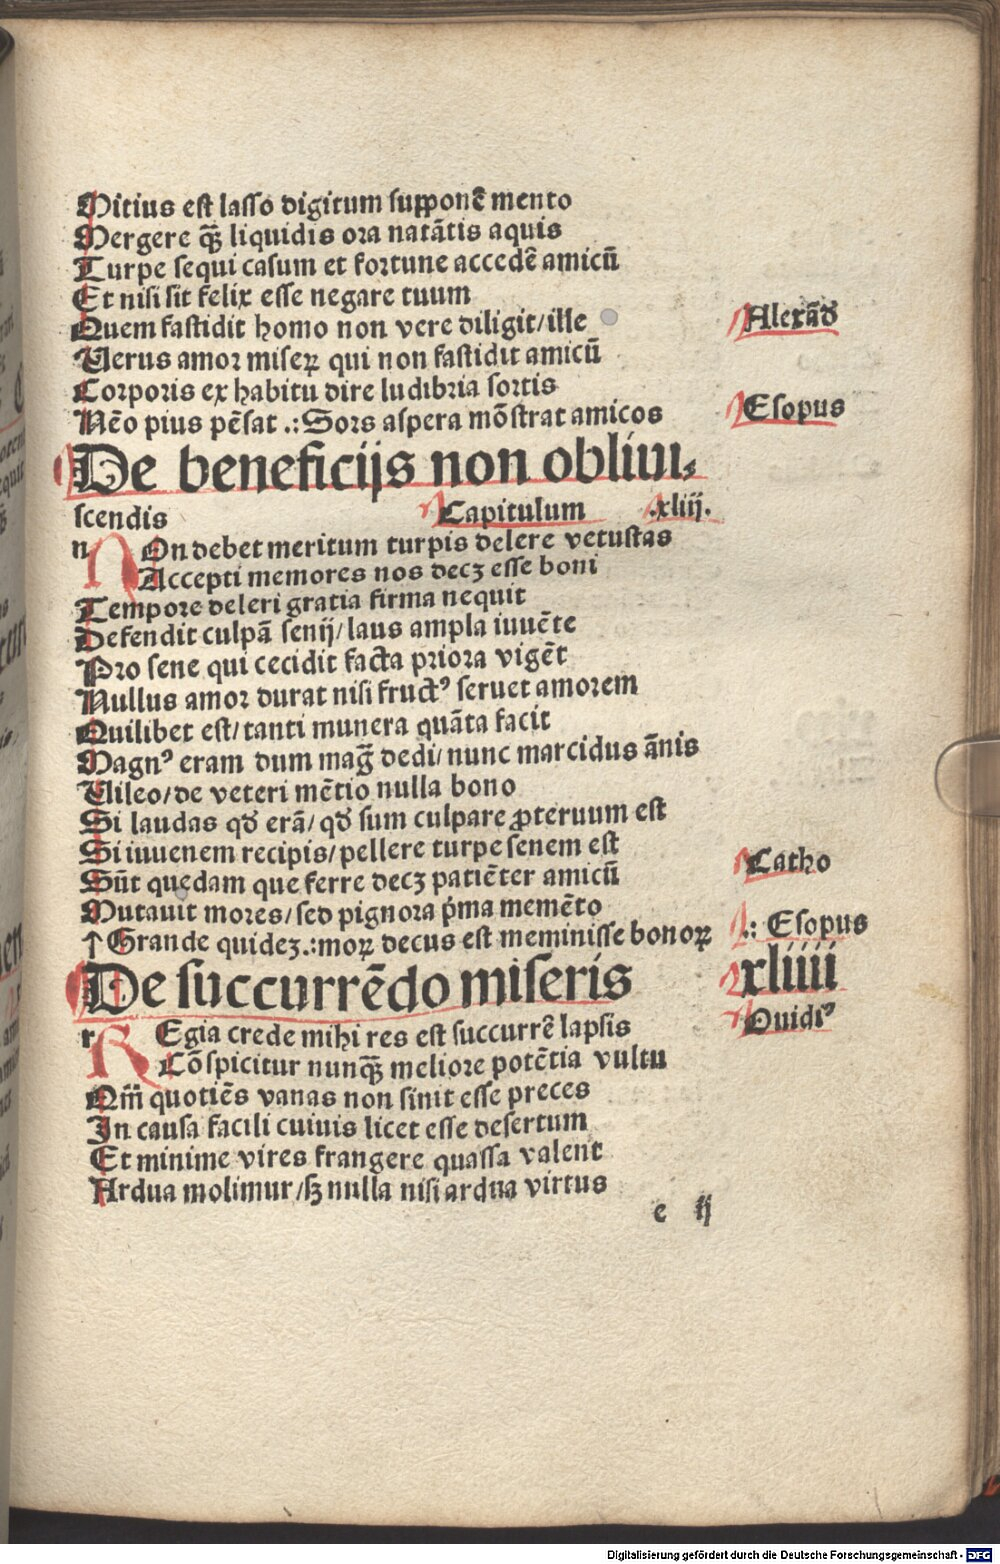 Mitius est lasso digitum supponẽ mento
Mergere qꝫ̃ liquidis ora natãtis aquis
Turpe sequi casum et fortune accedẽ amicũ
Et nisi sit felix esse negare tuum
Quem fastidit homo non vere diligit/ille
Alexãd
Uerus amor miseꝝ qui non fastidit amicũ
Corporis ex habitu dire ludibria sortis
Nẽo pius pẽsat .:Sors aspera mõstrat amicos
Esopus
De beneficijs non obliui⸗
scendis Capitulum .xliij.
n On debet meritum turpis delere vetustas
Accepti memores nos decꝫ esse boni
Tempore deleri gratia firma nequit
Defendit culpã senij/laus ampla iuuẽte
Pro sene qui cecidit facta priora vigẽt
Nullus amor durat nisi fructꝰ seruet amorem
Quilibet est/tanti munera quãta facit
Magnꝰ eram dum mag̃ dedi/nunc marcidus ãnis
Uileo/de veteri mẽtio nulla bono
Si laudas qđ erã/qđ sum culpare ꝓteruum est
Si iuuenem recipis/pellere turpe senem est
Sũt quedam que ferre decꝫ patiẽter amicũ
Catho
Mutauit mores/sed pignora p̃ma memẽto
↑Grande quideꝫ.:moꝝ decus est meminisse bonoꝝ
.: Esopus
De succurrẽdo miseris xliiii
r R Egia crede mihi res est succurrẽ lapsis
Ouidiꝰ
Cõspicitur nunqꝫ̃ meliore potẽtia vultu
Qm̃ quotiẽs vanas non sinit esse preces
In causa facili cuiuis licet esse desertum
Et minime vires frangere quassa valent
Ardua molimur/sꝫ nulla nisi ardua virtus
e ij
Digitalisierung gefördert durch die Deutsche Forschungsgemeinschaft - DFG